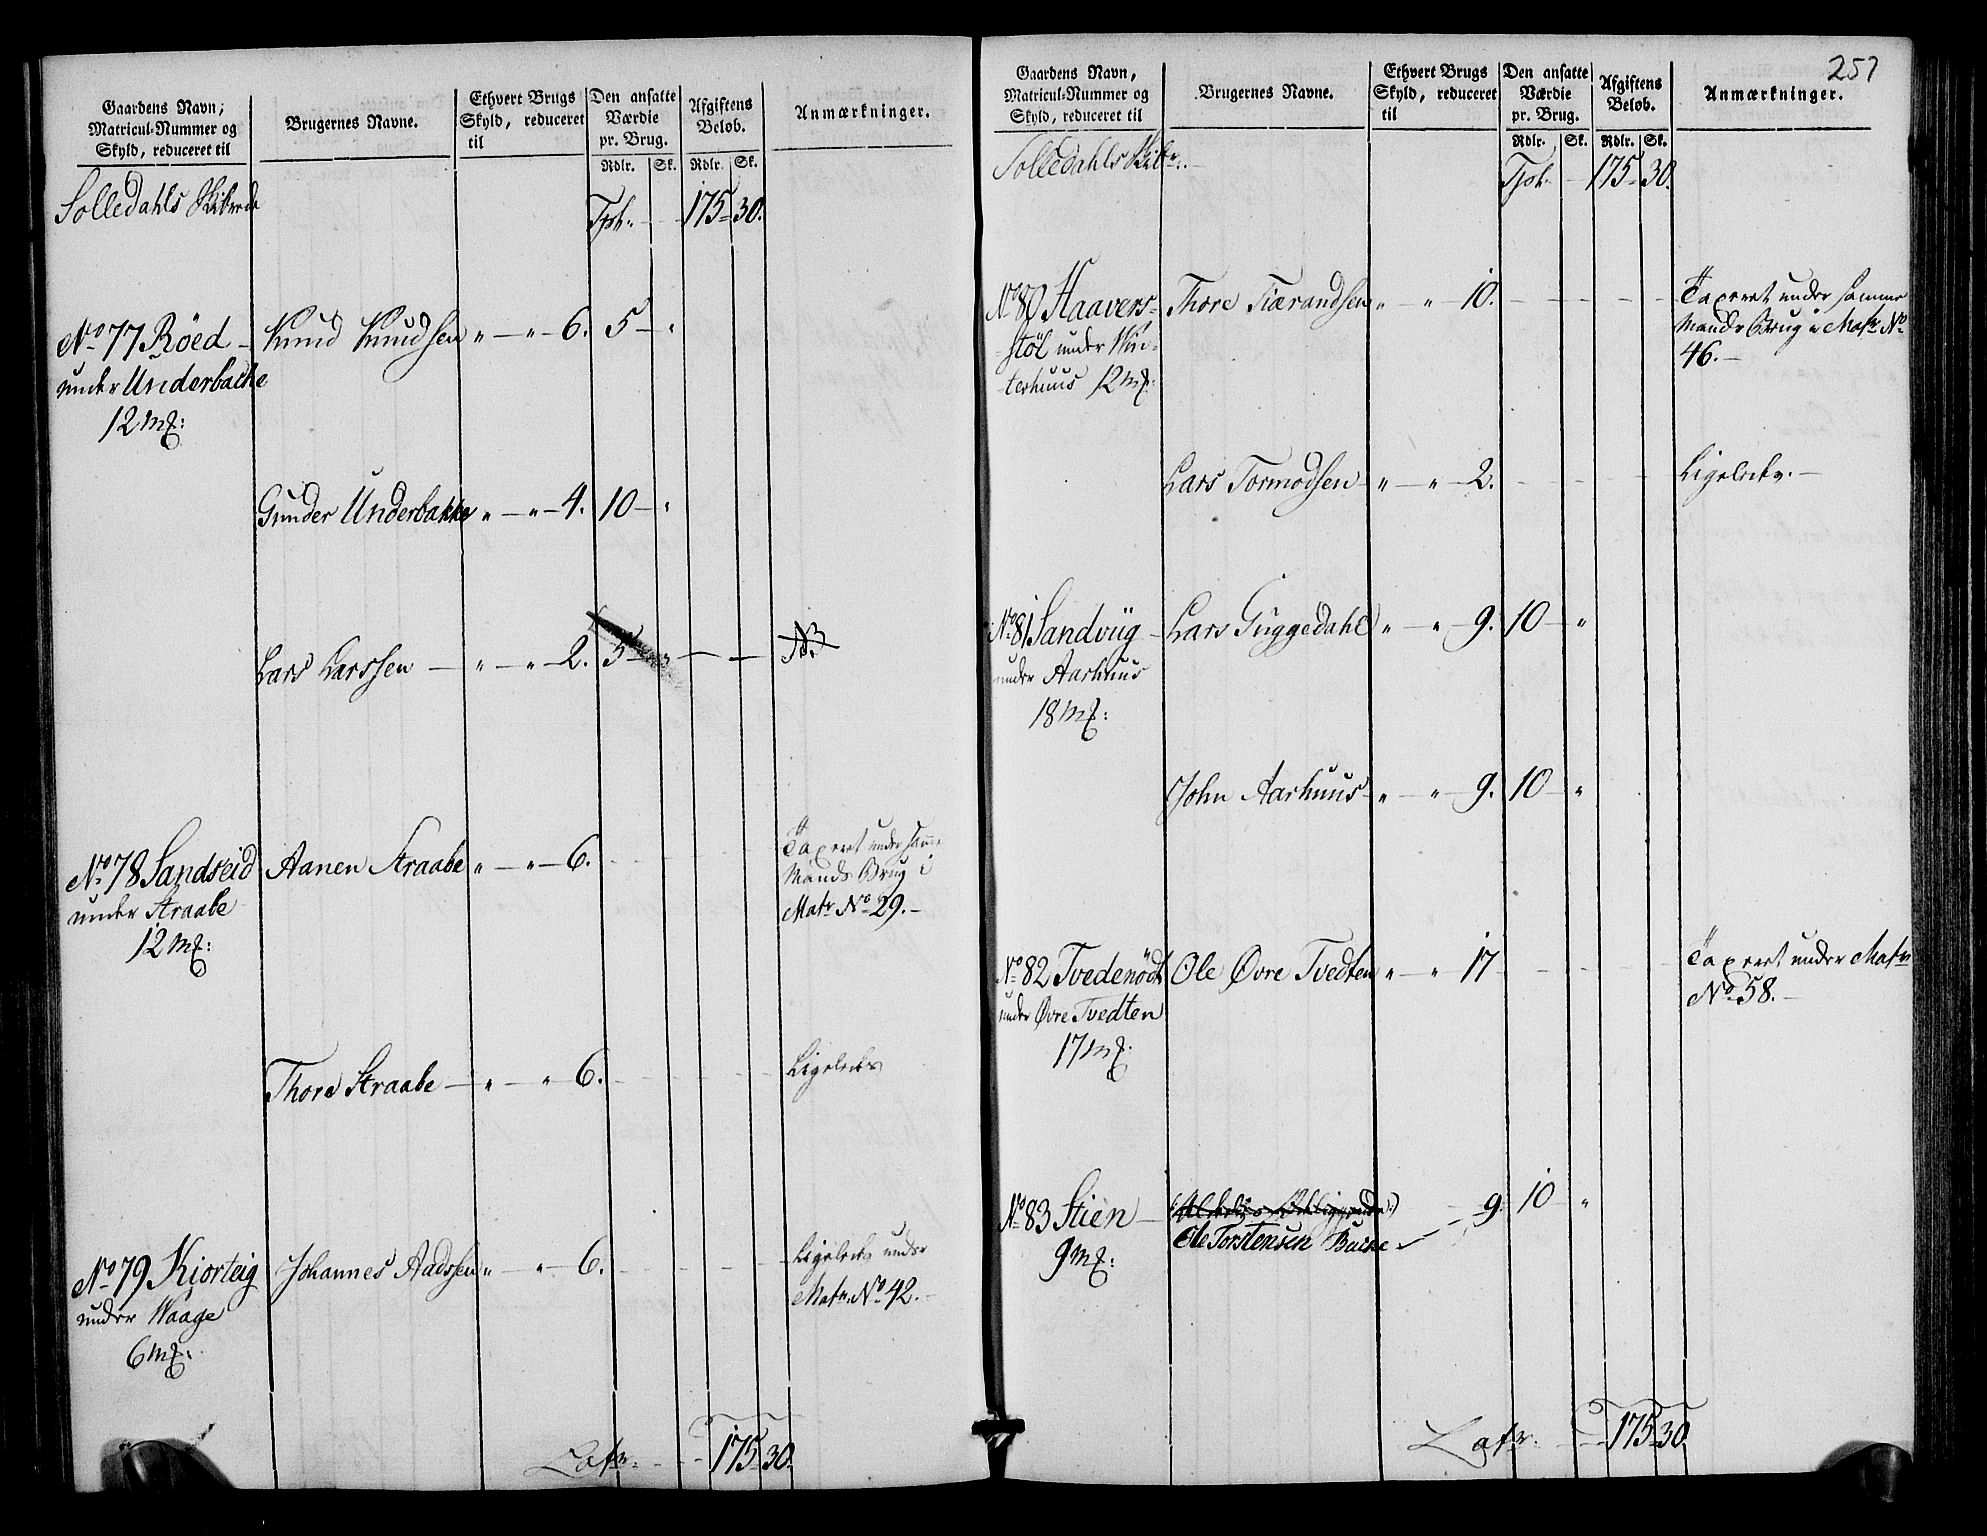 Gaardens Navn; Matricul-Nummer og Skyld, reduceret til
Brugernes Navne.
Ethvert Brugs Skyld, reduceret til
Den ansatte Værdie pr. Brug.
Rdlr. Sk.
Afgiftens Beløb.
Rdlr. Sk.
Anmærkninger.
Solledahls Skibrede
Tpt. 175 30.
No 77 Röed Knud Knudsen " — " — 6. 5 — "
under Underbacke
12 M[:
Gunder Underbakke " — " — 4. 10 — "
Lars Larssen — " — " — 2. 5 — "
No 78 Sandseid Aanen Straabe " — " — 6.
under Straabe
12 M[:
Taxeret under samme
Mands Brug i
Matr No 29. —
Thore Straabe — " — " 6. Ligeledes
No 79 Kiorteig Johannes Aadssen " — " — 6.
under Waage
6 M[:
Ligeledes under
Matr. No 42. —
Latr. 175 30.
257
Gaardens Navn, Matricul-Nummer og Skyld, reduceret til
Brugernes Navne.
Ethvert Brugs Skyld, reduceret til
Den ansatte Værdie pr. Brug.
Rdlr. Sk.
Afgiftens Beløb.
Rdlr. Sk.
Anmærkninger.
Solledahls Skibr.
Tpt. 175 30.
No 80 Haavers- Thore Tiærandsen " — " — 10.
stöl under Win-
terhuus 12 M[:
Taxeret under samme
Mands Brug i Matr No
46. —
Lars Tormodsen — " — " — 2. Ligeledes. —
No 81 Sandviig — Lars Guggedahl " — " — 9. 10 — "
under Aarhuus
18 M[:
John Aarhuus — " — " — 9. 10 — "
No 82 Tvedenödt Ole Øvre Tvedten " — " 17
under Øvre Tvedten
17 M[:
Taxeret under Matr
No 58. —
No 83 Stien — 9. 10 "
Ole Torstensen Backe
9 M[:
Latr. 175 30.